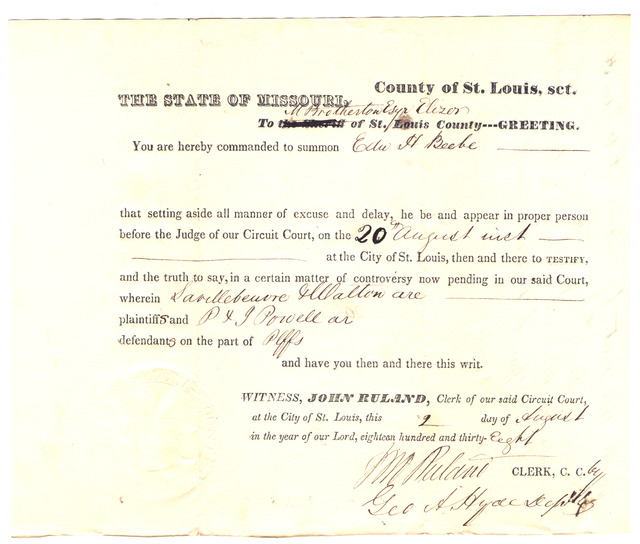 County of St. Louis, sct.
THE STATE OF MISSOURI,
M Brotherton Esqr Elizor
To the Sheriff of St. Louis County---GREETING.
You are hereby commanded to summon Edw H Beebe
that setting aside all manner of excuse and delay, he be and appear in proper person
before the Judge of our Circuit Court, on the 20th August inst
at the City of St. Louis, then and there to TESTIFY,
and the truth to say, in a certain matter of controversy now pending in our said Court,
wherein & Walton are
plaintiffs and P & J Powell ar
defendants on the part of Plffs
and have you then and there this writ.
WITNESS, JOHN RULAND, Clerk of our said Circuit Court,
at the City of St. Louis, this 9 day of August
in the year of our Lord, eighteen hundred and thirty-Eight
Jno Ruland CLERK, C. C. by
Geo A Hyde Depty